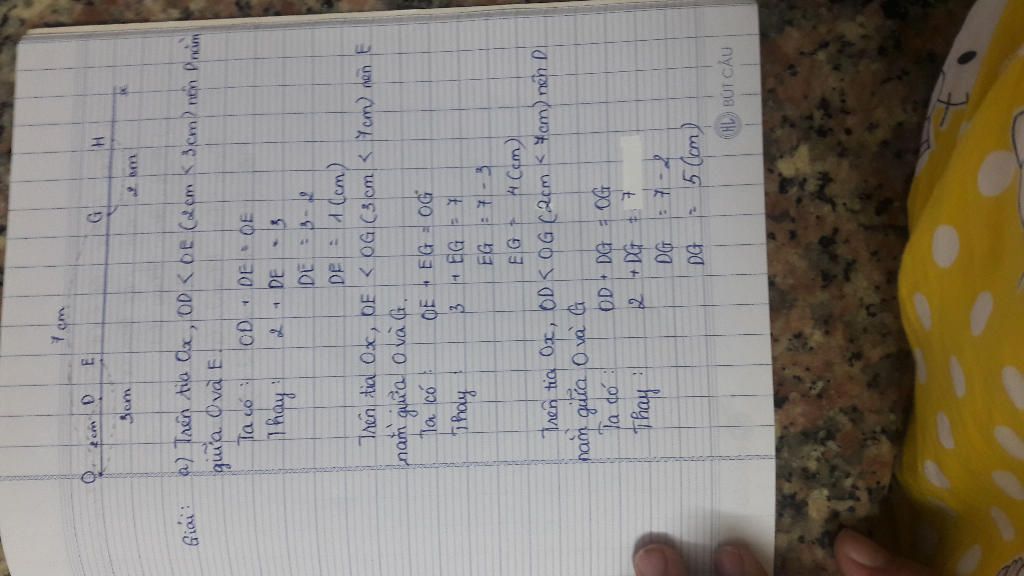 7 cm
O 2cm D E G H
3cm 2 cm x
Giải: a) Trên tia Ox, OD < OE (2cm < 3cm) nên D nằm
giữa O và E.
Ta có: OD + DE = OE
Thay: 2 + DE = 3
DE = 3 - 2
DE = 1 (cm)
Trên tia Ox, OE < OG (3cm < 7cm) nên E
nằm giữa O và G.
Ta có: OE + EG = OG
Thay: 3 + EG = 7
EG = 7 - 3
EG = 4 (cm)
Trên tia Ox, OD < OG (2cm < 7cm) nên D
nằm giữa O và G
Ta có: OD + DG = OG
Thay: 2 + DG = 7
DG = 7 - 2
DG = 5 (cm)
BÚT CẦU